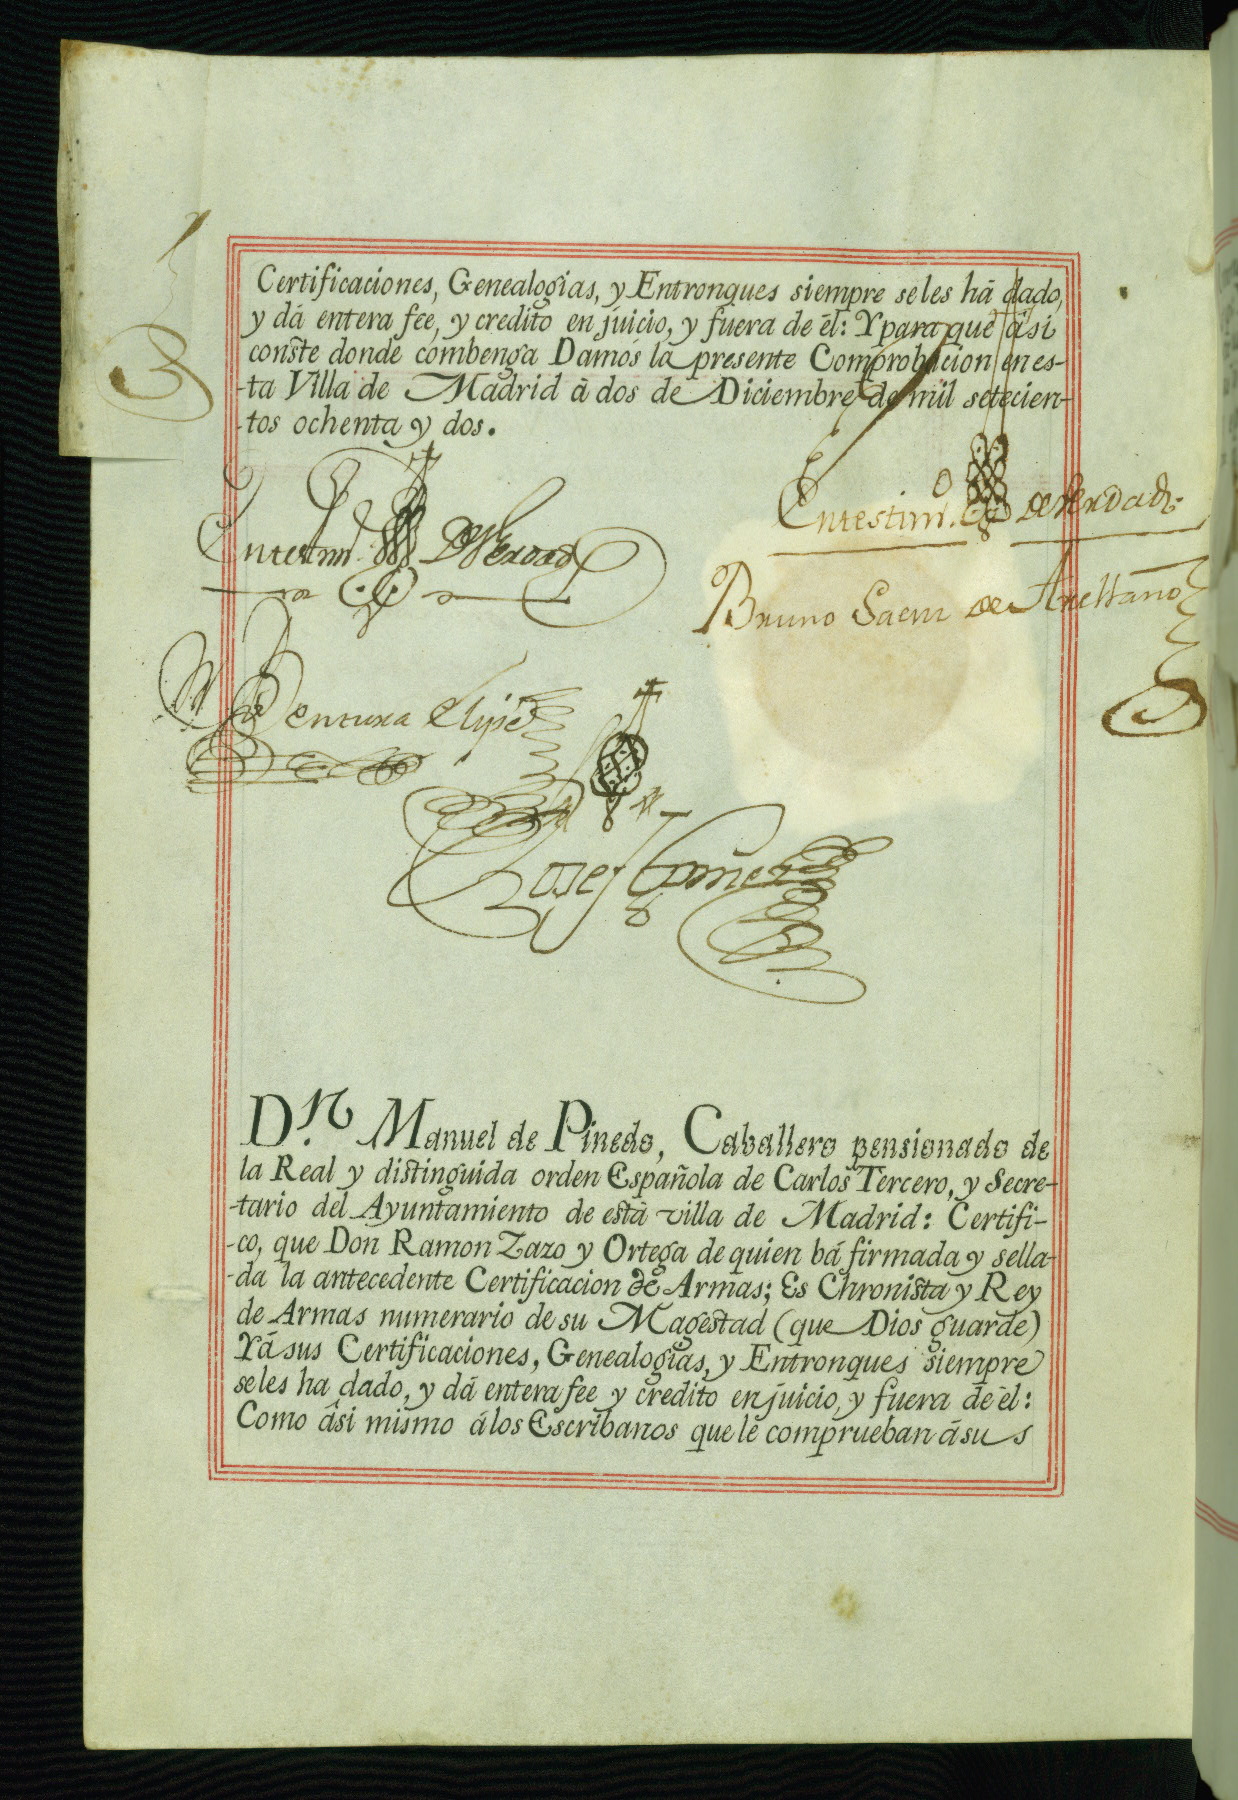 Certificaciones, Genealogias, y Entronques siempre seles há dado,
y dá entera fee, y credito en juicio, y fuera de él: Y para que así
conste donde combenga Damos la presente Comprobacion en es-
-ta Villa de Madrid á dos de Diciembre de mil setecien-
-tos ochenta y dos.
En testim.º de Verdad
En testim.º de Verdad.
Bruno Saenz de Arellano
Ventura Elipe
Josef Gomez
D.n Manuel de Pinedo, Caballero pensionado de
la Real y distinguida orden Española de Carlos Tercero, y Secre-
-tario del Ayuntamiento de esta villa de Madrid: Certifi-
-co, que Don Ramon Zazo y Ortega de quien bá firmada y sella-
-da la antecedente Certificacion de Armas; Es Chronista y Rey
de Armas numerario de su Magestad (que Dios guarde)
Yá sus Certificaciones, Genealogías, y Entronques siempre
seles ha dado, y dá entera fee y credito en juicio, y fuera de él:
Como ási mismo álos Escribanos que le comprueban ásus